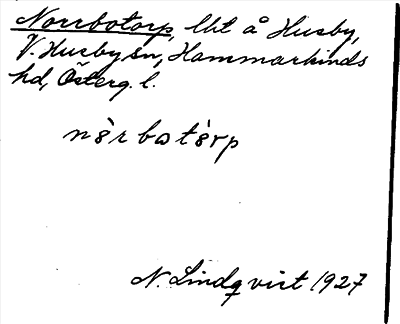 Norrbotorp, lht å Husby,
V. Husby sn, Hammarkinds
hd, Österg. l.
nòrbotòrp
N. Lindqvist 1927